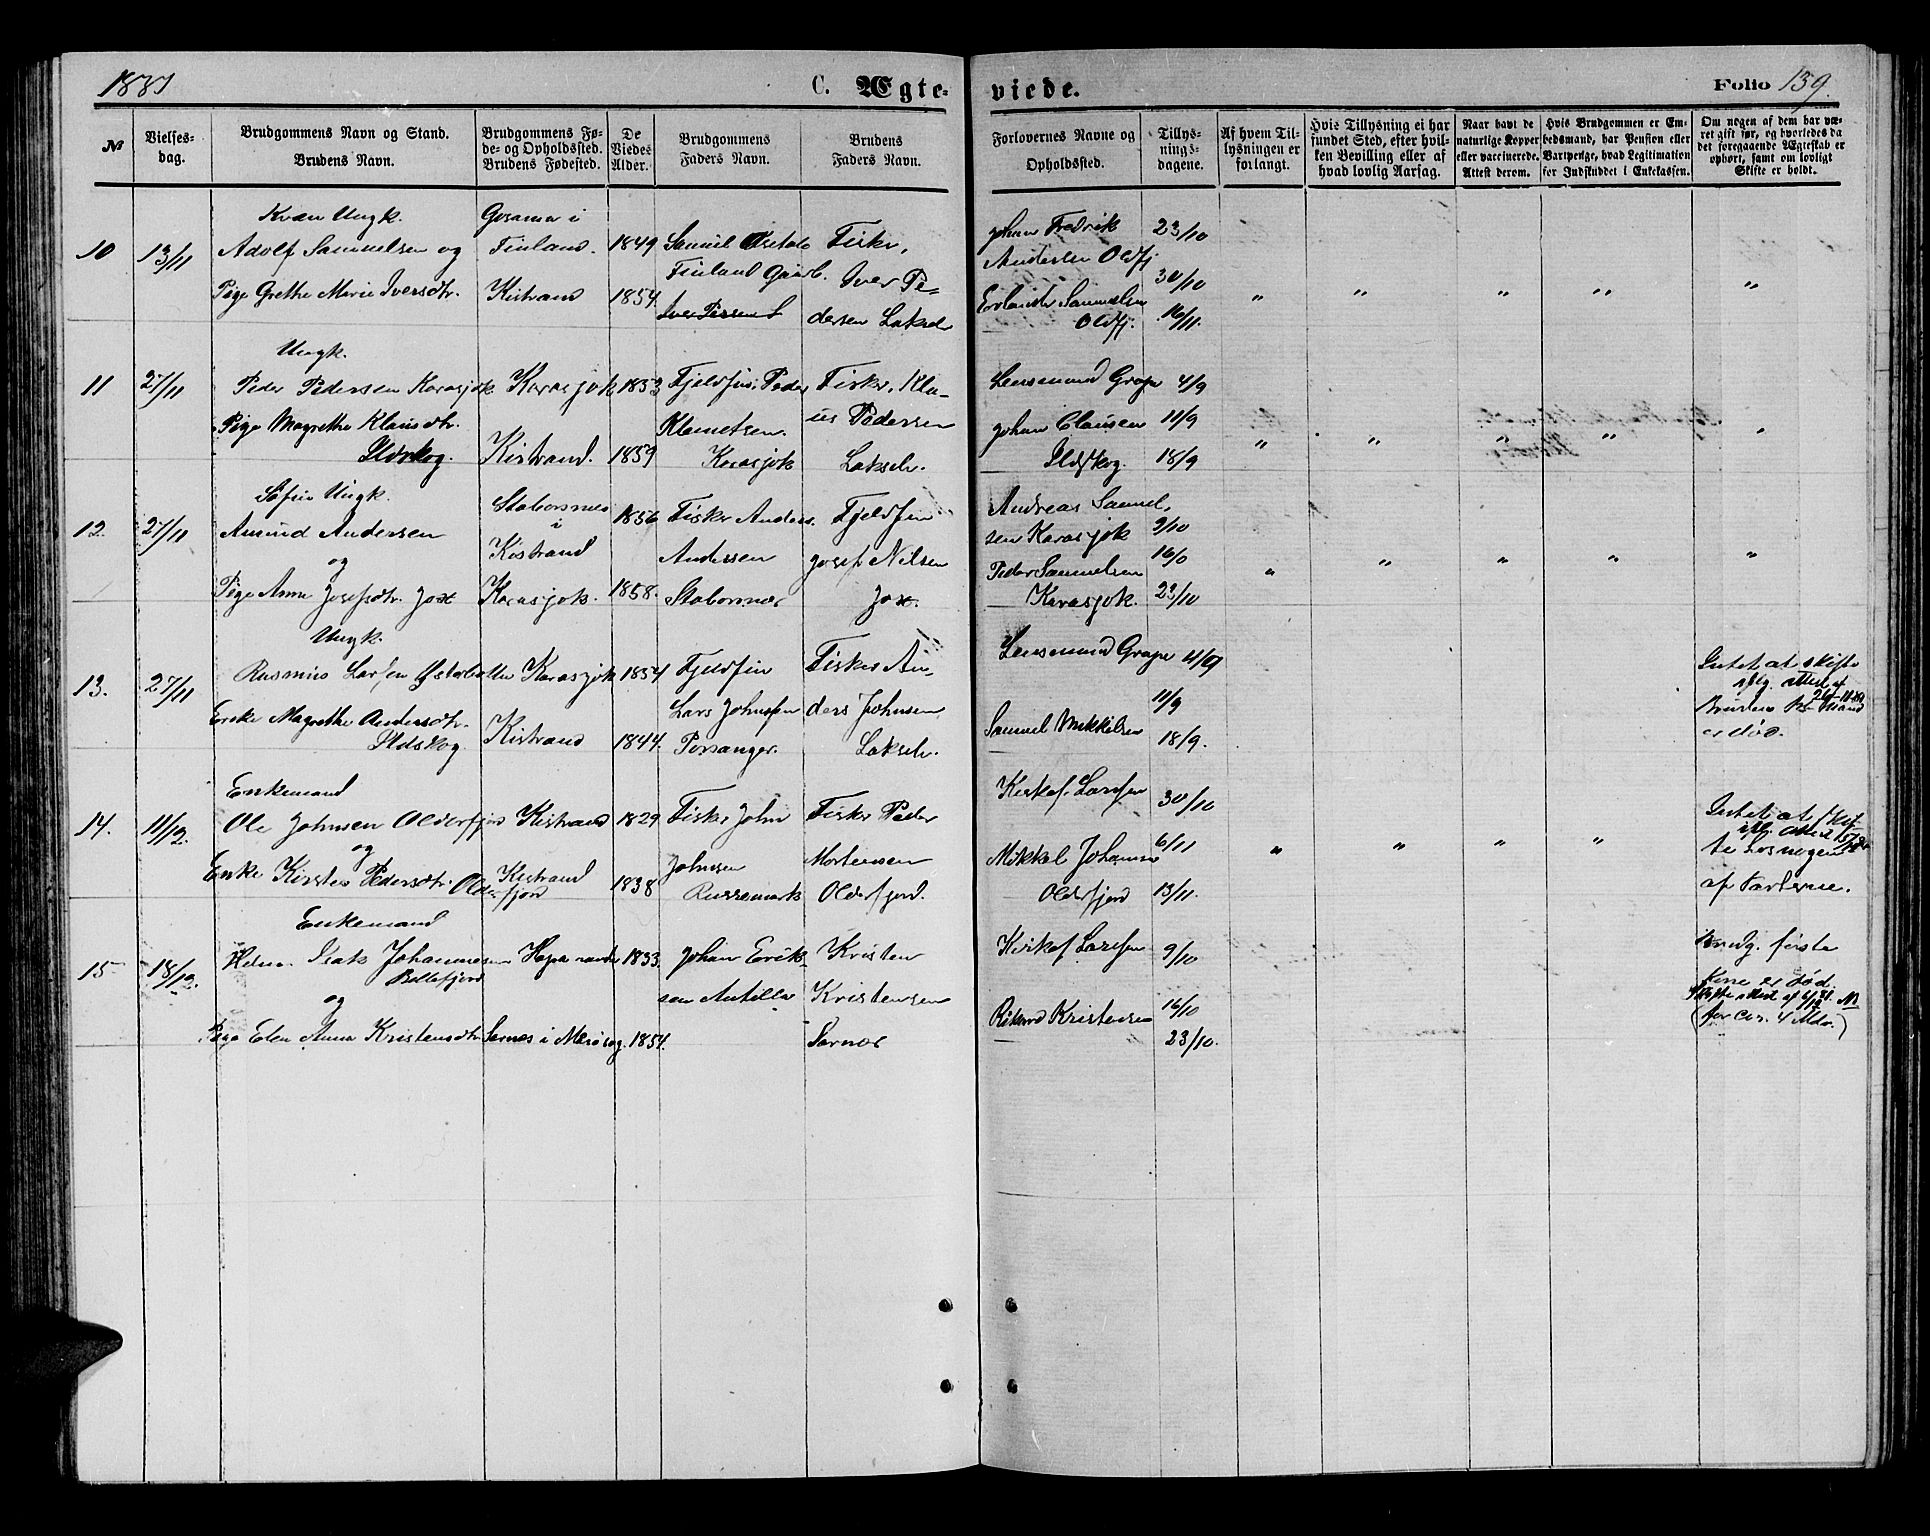 1881
C. Ægte-
viede.
Folio 139.
№
Vielses-
dag.
Brudgommens Navn og Stand.
Brudens Navn.
Brudgommens Fø-
de- og Opholdssted.
Brudens Fødested.
De
Viedes
Alder.
Brudgommens
Faders Navn.
Brudens
Faders Navn.
Forlovernes Navne og
Opholdssted.
Tillys-
nings-
dagene.
Af hvem Til-
lysningen er
forlangt.
Hvis Tillysning ei har
fundet Sted, efter hvil-
ken Bevilling eller af
hvad lovlig Aarsag.
Naar havt de
naturlige Kopper
eller vaccinerede.
Attest derom.
Hvis Brudgommen er Em-
bedsmand, har Pension eller
Vartpenge, hvad Legitimation
for Indskuddet i Enkekassen.
Om nogen af dem har væ-
ret gift før, og hvorledes da
det foregaaende Ægteskab er
ophørt, samt om lovligt
Skifte er holdt.
10
13/11
Kvæn Ungk.
Adolf Samuelsen og
Pige Grethe Marie Iversdtr.
i
Finland.
Kistrand
1849
1854
Samuel
Finland Gaarb.
Fisker,
Iver Pe-
dersen Lakselv
Johan Fredrik
Andersen Oldfj
Samuelsen
Oldfj.
23/10
30/10
16/11.
" " " " "
11
27/11
Ungk.
Peder Pedersen Karasjok
Pige Magrethe Klausdtr.
Ildskog.
Karasjok
Kistrand.
1853
1859
Fjeldfin, Peder
Klemetsen.
Karasjok
Fisker, Kla-
us Pedersen
Lakselv.
Lensmand Grape
Johan Clausen
Ildskog.
4/9
11/9
18/9
" " " " "
12.
27/11
Søfin Ungk.
Amund Andersen
og
Pige Anne Josefsdtr.
i
Kistrand
Karasjok.
1856
1858.
Fisker Anders
Andersen
Fjeldfin
Josef Nilsen
Andreas Samuel,
sen Karasjok
Peder Samuelsen
Karasjok.
9/10
16/0
23/10
" " " " "
13.
27/11
Ungk.
Rasmus Larsen Østerbotten
Enke Magrethe Andersdtr.
Ildskog
Karasjok
Kistrand
1854
1844.
Fjeldfin
Lars Johnsen
Porsanger.
Fisker An-
ders Johnsen
Lakselv.
Lensmand Grape
Samuel Mikkelsen
4/9
11/9
18/9.
Intet at skifte
Brudens
Mand
er død.
14.
11/12.
Enkemand
Ole Johnsen Olderfjord
og
Enke Kirsten Pedersdtr. Older-
fjord
Kistrand
Kistrand
1829
1838
Fisker John
Johnsen
Russemark
Fisker Peder
Mortensen
Olderfjord.
Kirkef. Larssen
Mikkel
Olderfjord
30/10
6/11
13/11.
" " " "
Intet at skif-
te hos nogen
af Parterne.
15
18/12.
Enkemand
Isak Johannesen
Billefjord
og
Pige Elen Anna Kristensdtr.
Haparanda
Sarnes i
1833.
1854.
Johan Erik-
sen
Kristen
Kristensen
Sarnes
Kirkef Larssen
Kristensen
9/10
16/10
23/10.
Brudg. første
Kone er død.
(for cir. 4 Mdr.)